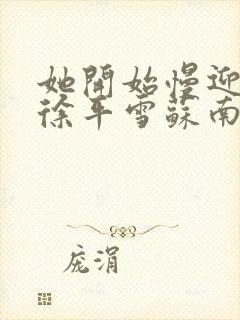 她開始慢迎
徐平雪蘇南
庞涓